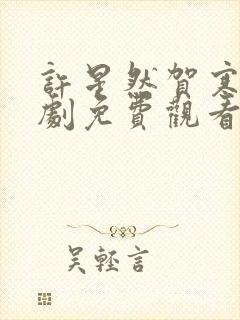 許星然賀寒
劇免費觀看
吴輕言